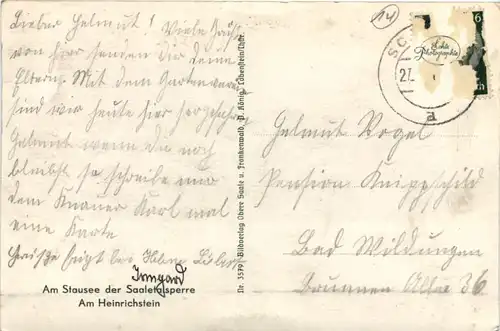 Lieber Helmut! Viele Grüße
von hier senden Dir deine
Eltern. Mit dem Gartenverein
sind wir heute hier
Helmut wenn Du noch
bleibst so schreibe mir
dem Knauer Karl mal
eine Karte
Grüße
Irmgard
Am Stausee der Saaletalsperre
Am Heinrichstein
Nr. 3579 Bildverlag Obere Saale u. Frankenwald, H. König, Lobenstein/Thür.
14
6
Echte
Photographie
SC
27.
a
Helmut Vogel
Pension Knippschild
Bad Wildungen
Brunnen Allee 36